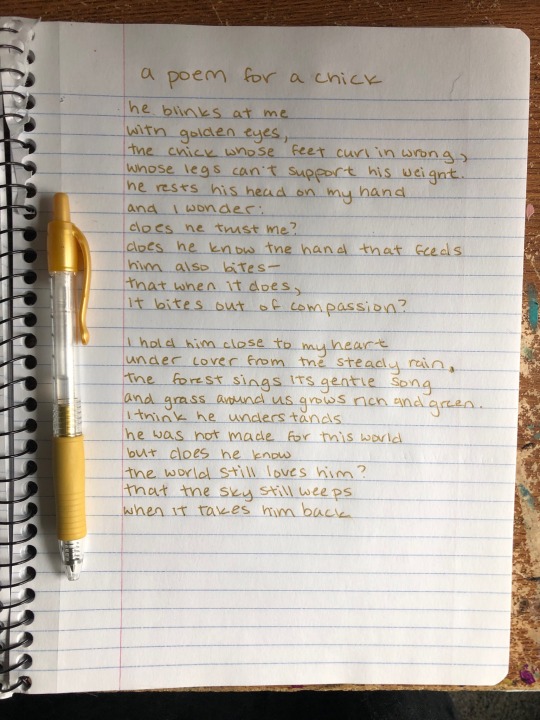 a poem for a chick
he blinks at me
with golden eyes,
the chick whose feet curl in wrong,
whose legs can't support his weight.
he rests his head on my hand
and I wonder:
does he trust me?
does he know the hand that feeds
him also bites—
that when it does,
it bites out of compassion?
I hold him close to my heart
under cover from the steady rain,
the forest sings its gentle song
and grass around us grows rich and green.
I think he understands
he was not made for this world
but does he know
the world still loves him?
that the sky still weeps
when it takes him back